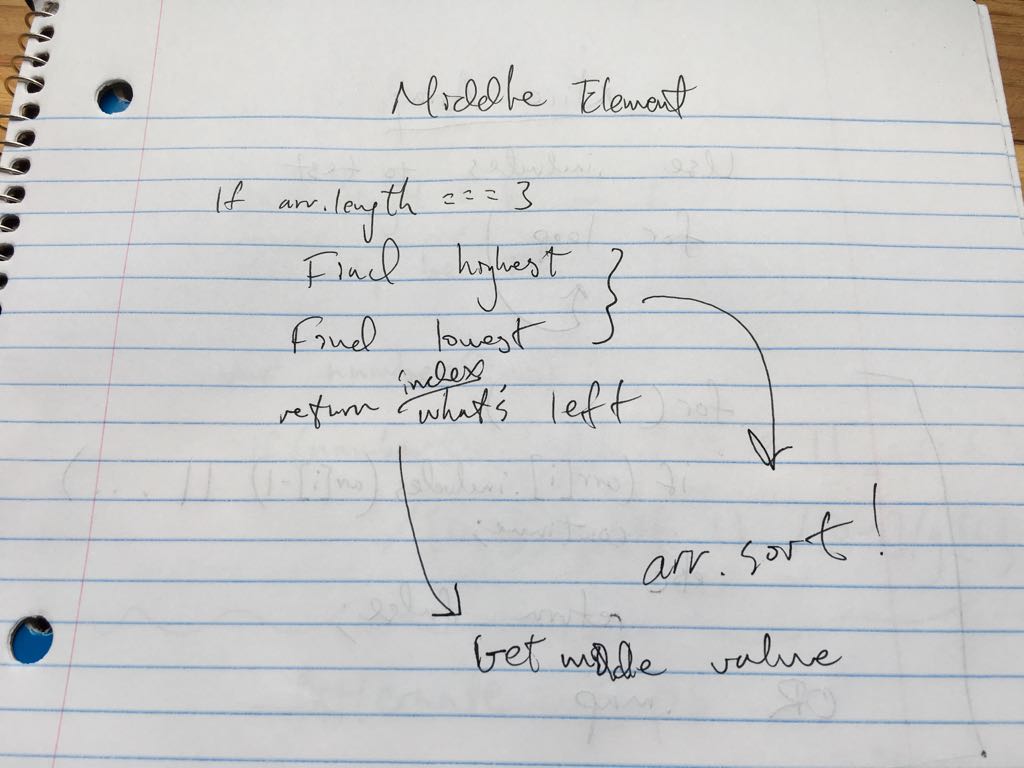 Middle Element
If arr.length === 3
Find highest
Find lowest
index
return what's left
arr.sort!
Get middle value